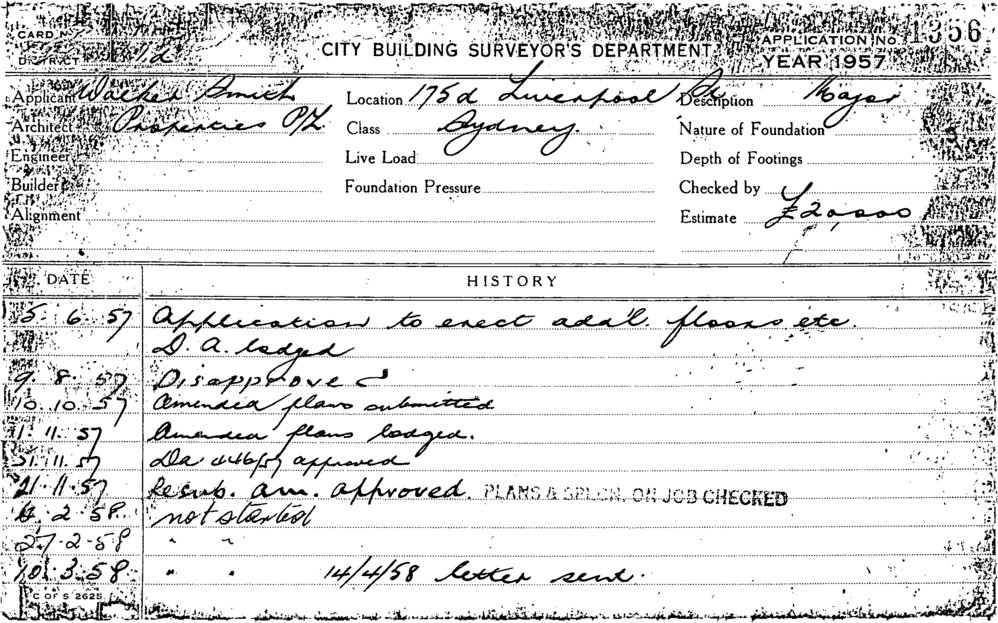 CARD No
DISTRICT
CITY BUILDING SURVEYOR'S DEPARTMENT
APPLICATION No. 1356
YEAR 1957
Applicant Walker Smith Location 175d Liverpool St Description Major
Architect Properties P/L Class Sydney. Nature of Foundation
Engineer Live Load Depth of Footings
Builder Foundation Pressure Checked by
Alignment Estimate £20,000
DATE HISTORY
5. 6. 57 Application to erect add'l. floors etc.
D. A. lodged
9. 8. 57 Disapproved
10. 10. 57 Amended plans submitted
1. 11. 57 Amended plans lodged.
21. 11. 57 Da 446/57 approved
21. 11. 57 Resub. am. approved. PLANS & SPECN. ON JOB CHECKED
2. 58. not started
27. 2. 58 " "
10. 3. 58 " " 14/4/58 letter sent.
C OF S 2625